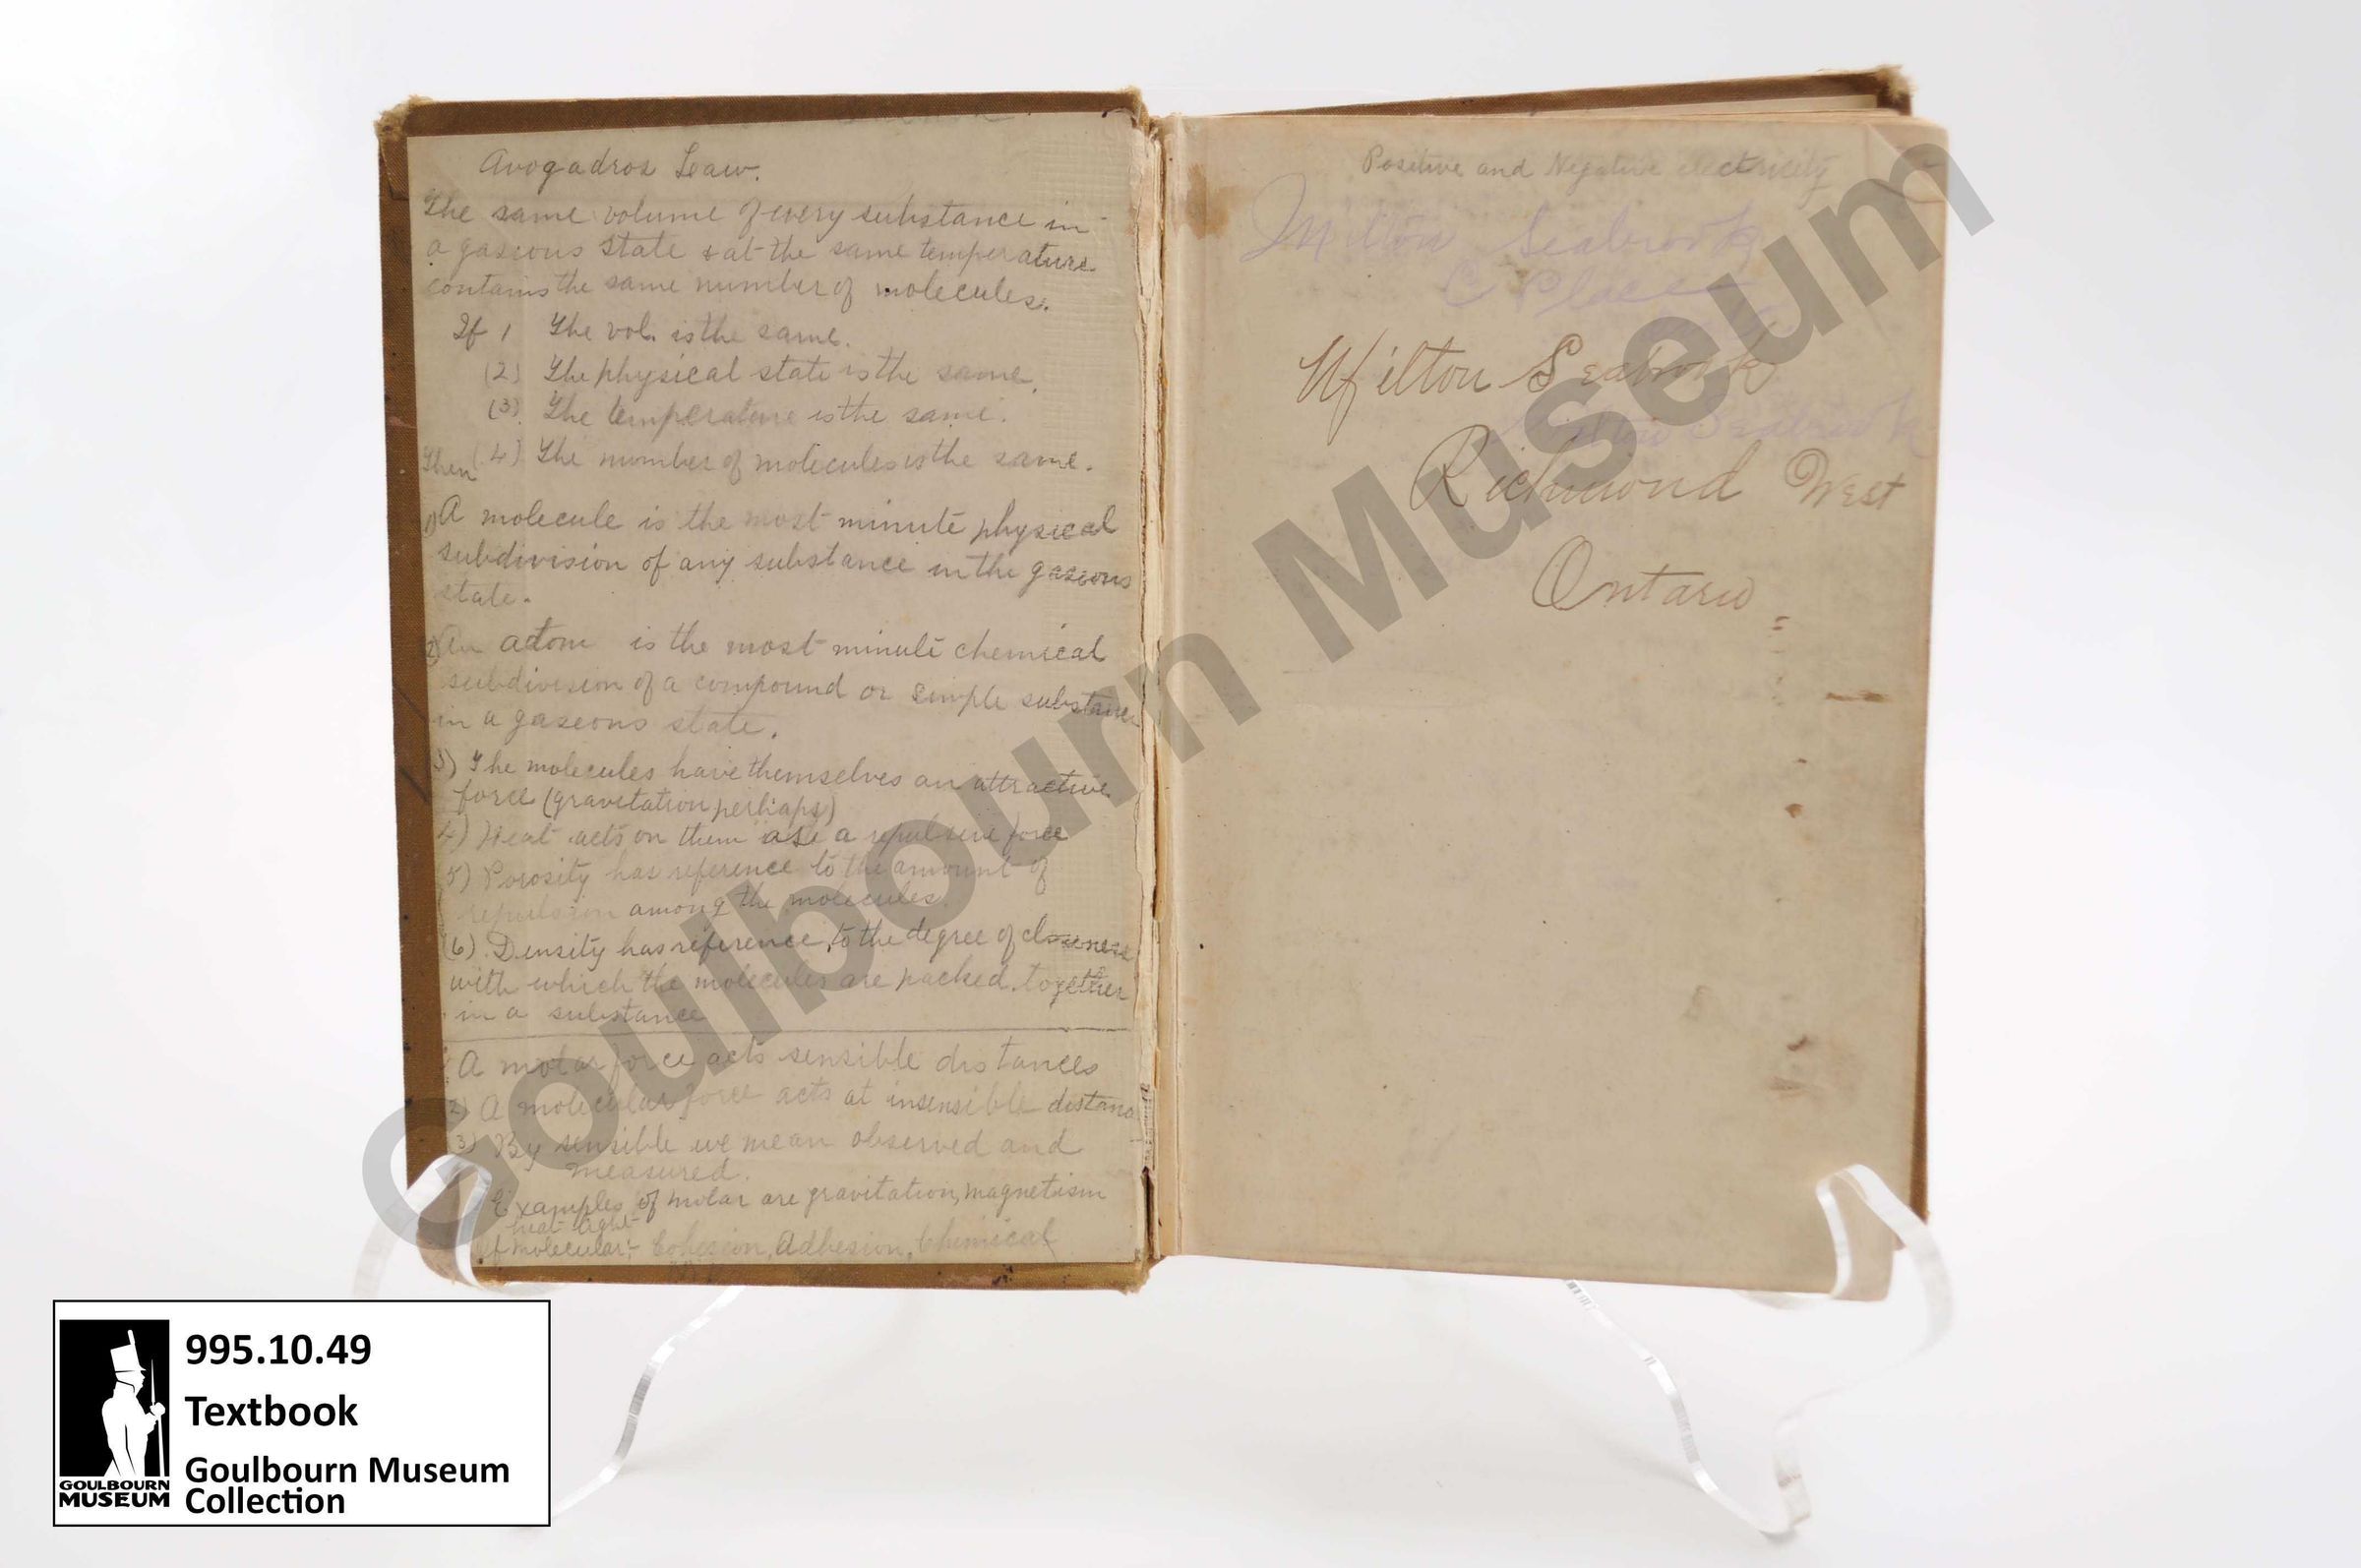 Avogadros Law.
The same volume of every substance in
a gaseous state & at the same temperature
contains the same number of molecules.
If 1 The vol. is the same.
(2) The physical state is the same.
(3) The temperature is the same.
Then (4) The number of molecules is the same.
1) A molecule is the most minute physical
subdivision of any substance in the gaseous
state.
2) An atom is the most minute chemical
subdivision of a compound or simple substance
in a gaseous state.
3) The molecules have themselves an attractive
force (gravitation perhaps)
4) Heat acts on them as a repulsive force
5) Porosity has reference to the amount of
repulsion among the molecules.
(6) Density has reference to the degree of closeness
with which the molecules are packed together
in a substance
A molar force acts sensible distances
2) A molecular force acts at insensible distanc
3) By sensible we mean observed and
measured.
Examples of molar are gravitation, magnetism
heat light
Of molecular:- Cohesion, Adhesion, Chemical
Positive and Negative electricity
Milton Seabrook
Milton Seabrook
Milton Seabrook
Richmond West
Ontario
Goulbourn Museum
995.10.49
Textbook
Goulbourn Museum
Collection
GOULBOURN
MUSEUM